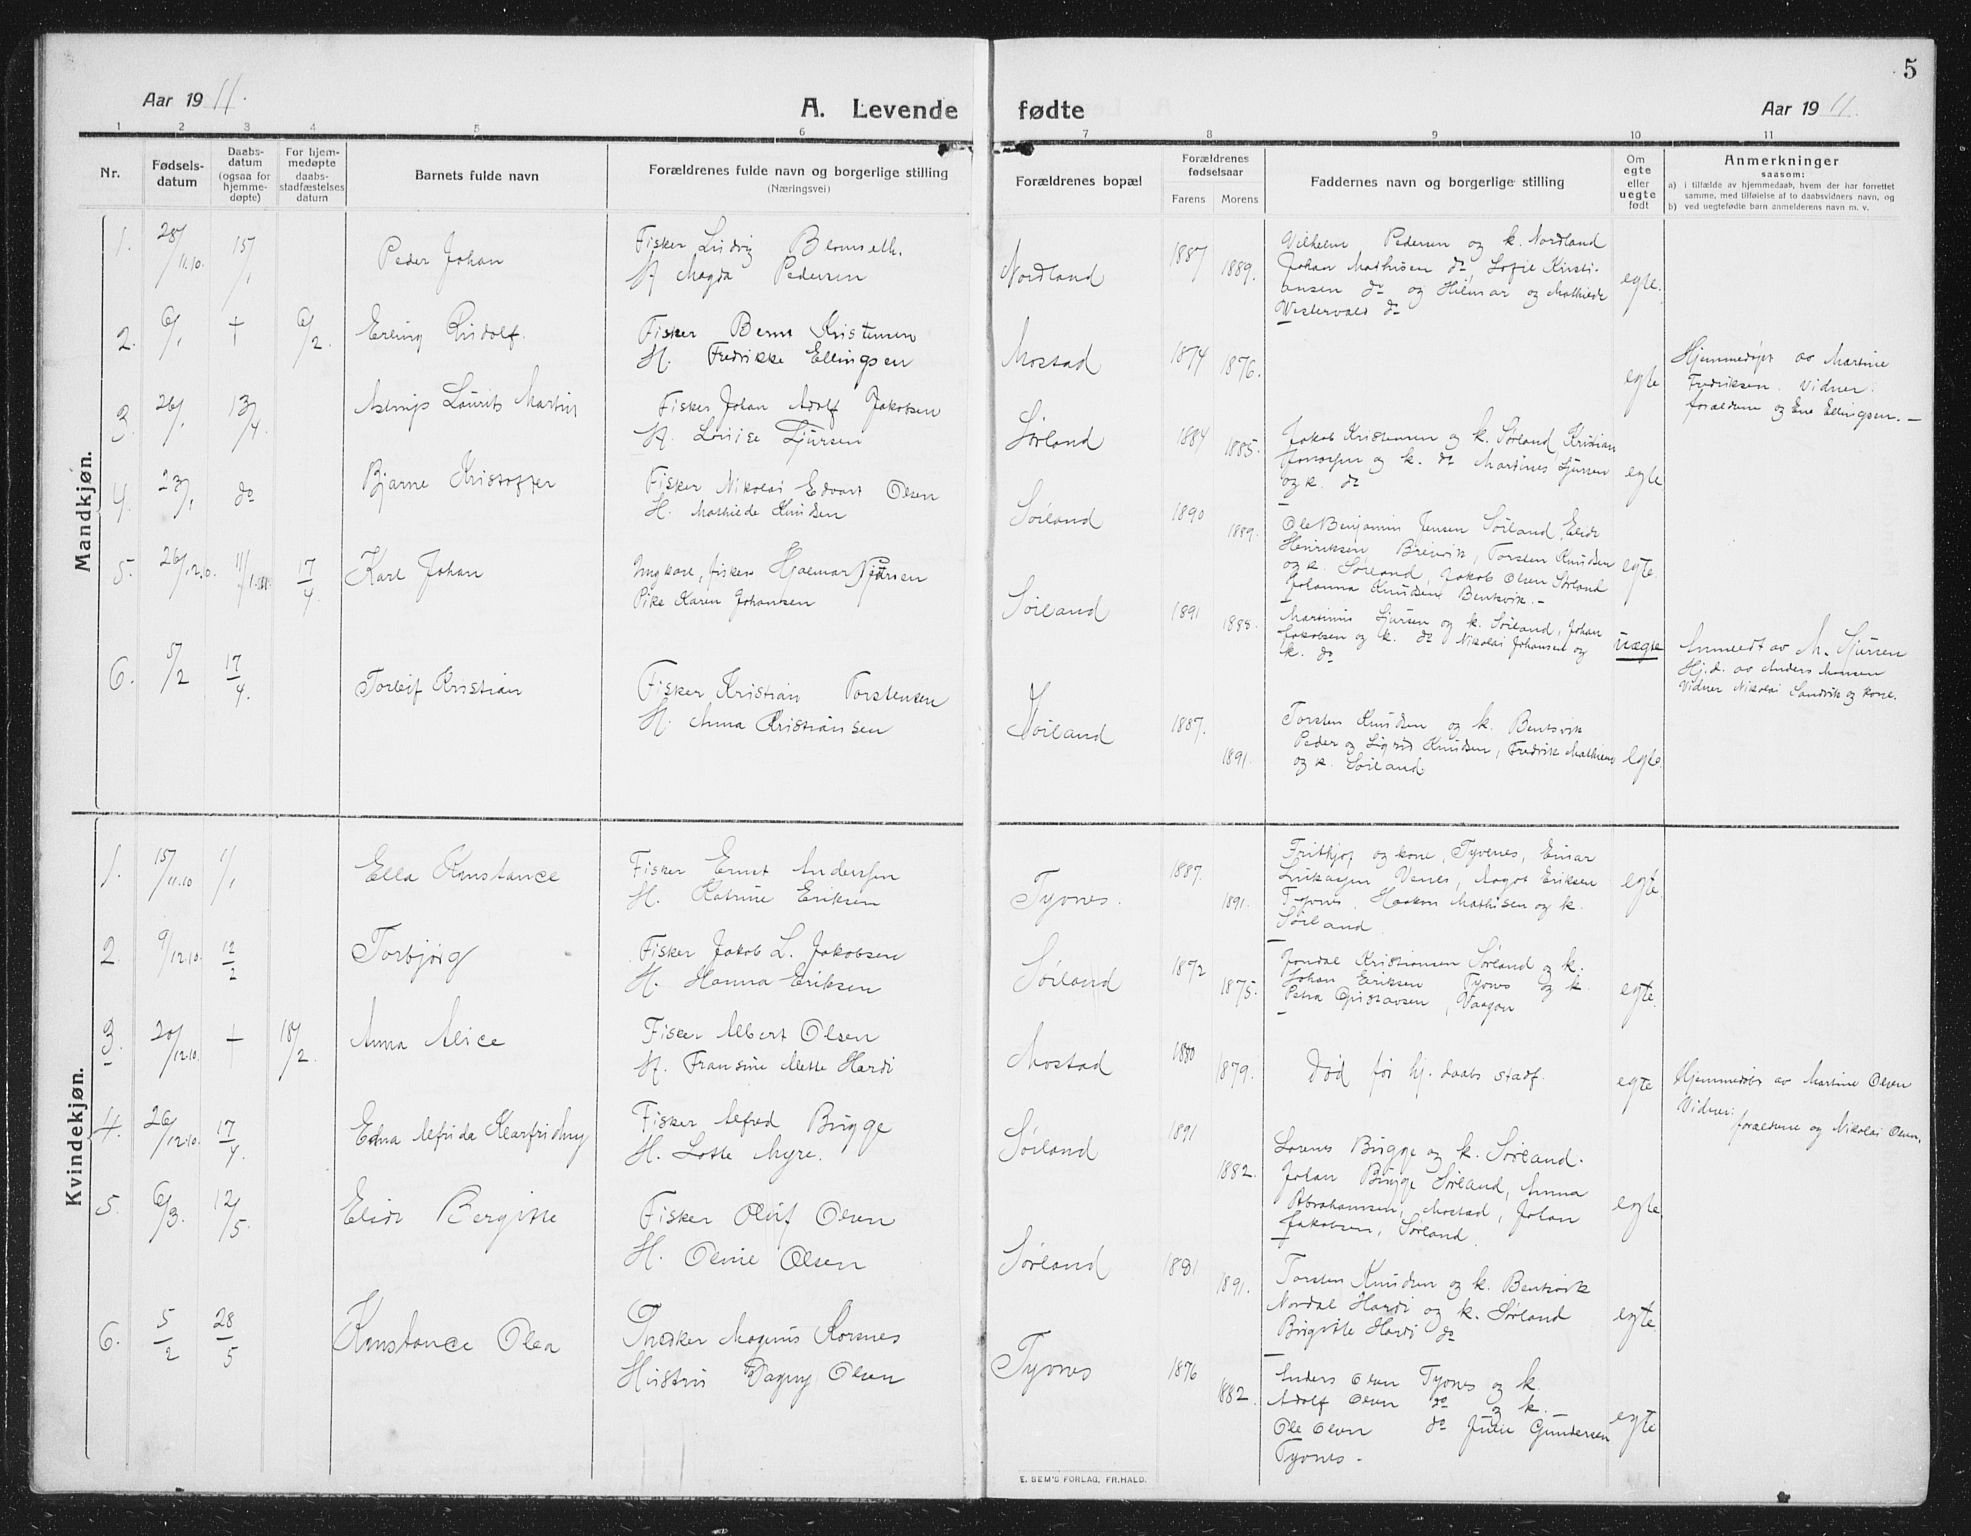 5
Aar 1911.
A. Levende fødte
Aar 1911.
1 2 3 4 5 6 7 8 9 10 11
Nr.
Fødsels-
datum
Daabs-
datum
(ogsaa for
hjemme-
døpte)
For hjem-
medøpte
daabs-
stadfæstelses
datum
Barnets fulde navn
Forældrenes fulde navn og borgerlige stilling
(Næringsvei)
Forældrenes bopæl
Forældrenes
fødselsaar
Farens Morens
Faddernes navn og borgerlige stilling
Om
egte
eller
uegte
født
Anmerkninger
saasom:
a) i tilfælde av hjemmedaab, hvem der har forrettet
samme, med tilføielse af to daabsvidners navn, og
b) ved uegtefødte barn anmelderens navn m. v.
Mandkjøn.
1. 28/11.10. 15/1 Peder Johan
Fisker Ludvig
H. Magda Pedersen
Nordland 1887 1889.
Vilhelm Pedersen og k. Nordland
Johan Mathisen do, Sofie Kristi-
ansen do og Hilmar og Mathilde
Vestervold do
egte.
2. 6/1 + 6/2 Erling Rudolf.
Fisker Bernt Kristensen
H. Fredrikke Ellingsen
Mostad 1874 1876.
egte
Hjemmedøpt av Martine
Fredriksen. Vidner:
forældrene og Ene Ellingsen. —
3. 26/1 13/4 Laurits Martin
Fisker Johan Adolf Jakobsen
H. Louise Sjursen
Sørland 1884 1885.
Jakob Kristensen og k. Sørland, Kristian
og k. do Martines Sjursen
og k. do
egte
4. 23/1 do Bjarne Kristoffer
Fisker Nikolai Edvart Olsen
H. Mathilde Knudsen
Sørland 1890 1889.
Ole Benjamin Jensen Sørland, Elide
Henriksen Breivik, Torsten Knudsen
og k. Sørland, Jakob Olsen Sørland
Johanna Knudsen Bentsvik. —
egte.
5. 26/12.10. 11/1 17/4 Karl Johan
Ungkarl, fisker Hjalmar
Pike Karen Johansen
Sørland 1891 1888.
Martinius Sjursen og k. Sørland, Johan
Jakobsen og k. do Nikolai Johansen og
k. do
uægte
Anmeldt av M. Sjursen
Hj.d. av Anders Monsen
Vidner Nikolai Sandvik og kone.
6. 5/2 17/4. Torleif Kristian
Fisker Kristian Torstensen
H. Anna Kristiansen
Sørland 1887. 1891.
Torsten Knudsen og k. Bentsvik
Peder og Sigrid Knudsen, Fredrik Mathisen
og k. Sørland.
egte
Kvindekjøn.
1. 15/11.10 1/1 Ella Konstance
Fisker Ernst Andersen
H. Katrine Eriksen
Tyvnes. 1887. 1891.
Frithjof og kone, Tyvnes, Einar
Lukassen Værnes, Aagot Eriksen
Tyvnes, Haakon Mathisen og k.
Sørland.
egte
2. 9/12.10. 12/2 Torbjørg
Fisker Jakob L. Jakobsen
H. Hanna Eriksen
Sørland 1872 1875.
Kristiansen Sørland og k.
Johan Eriksen Tyvnes og k.
Petra Gustavsen, Vaagan
egte.
3. 20/12.10. + 18/2. Anna Alice
Fisker Albert Olsen
H. Fransine Mette Hardi
Mostad 1880 1879.
Død før hj. daabs stadf.
egte
Hjemmedøbt av Martine Olsen
Vidner:
forældrene og Nikolai Olsen.
4. 26/12.10. 17/4 Edna Alfrida
Fisker Alfred Brygge
H. Lotte Myre.
Sørland 1891 1882.
Brygge og k. Sørland.
Johan Brygge Sørland, Anna
Abrahamsen, Mostad, Johan
Jakobsen, Sørland.
egte.
5. 6/3. 12/5. Elide Bergitte
Fisker Oluf Olsen
H. Oline Olsen
Sørland 1881 1891.
Torsten Knudsen og k. Bentsvik
Nordal Hardi og k. Sørland
Birgitte Hardi do
egte.
6. 5/2 28/5 Konstance Olea
Magnus Kornes
Hustru Dagny Olsen
Tyvnes 1876 1882.
Anders Olsen Tyvnes og k.
Adolf Olsen do og k.
Ole Olsen do Julie Gundersen
Tyvnes.
egte
E. SEM'S FORLAG, FR.HALD.